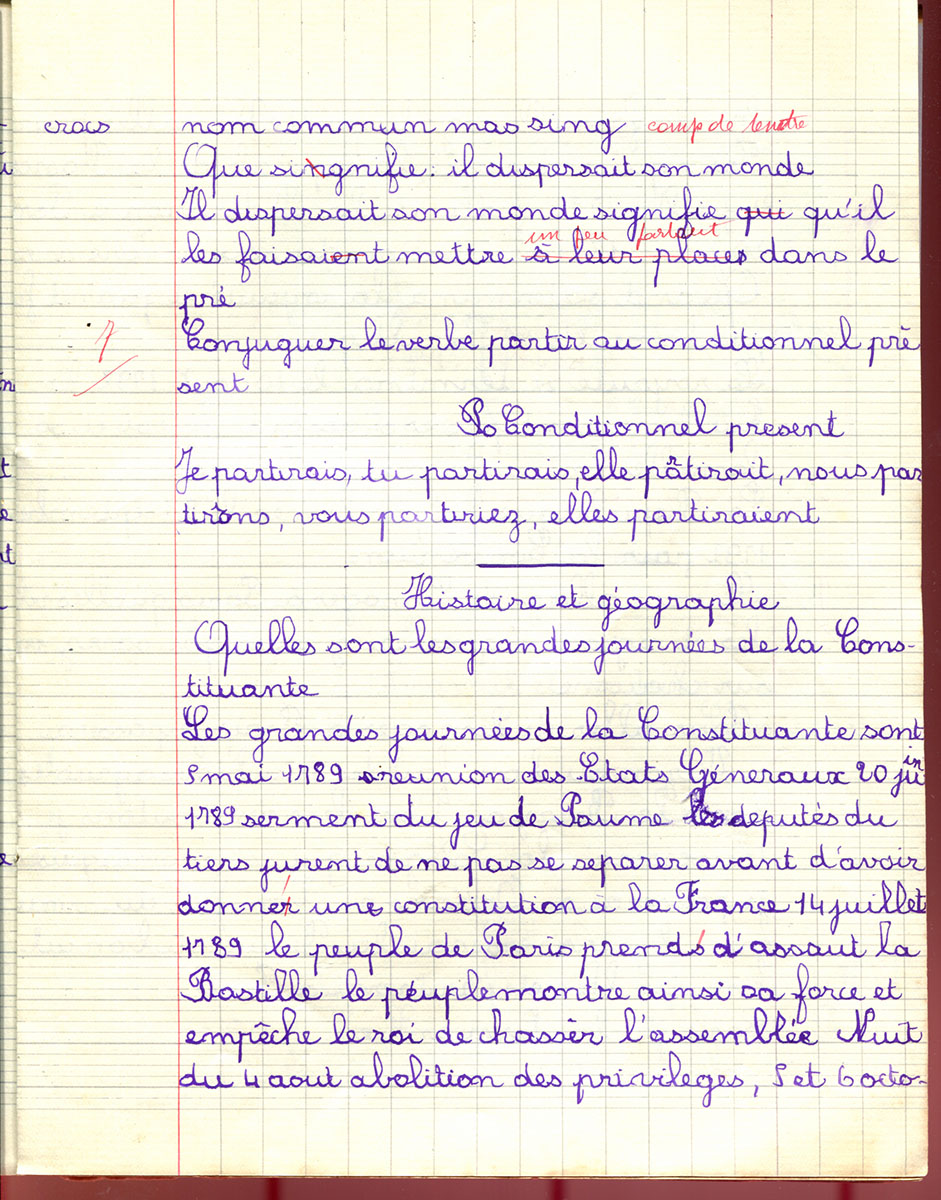 crocs nom commun mas sing comp de lentre
Que singnifie : il dispersait son monde
Il dispersait son monde signifie qui qu'il
un peu partout
les faisaient mettre à leur places dans le
pré
7
Conjuguer le verbe partir au conditionnel pré
sent
Conditionnel present
Je partirais, tu partirais, elle pârtirait, nous par
tirons, vous partiriez, elles partiraient
Histoire et géographie
Quelles sont les grandes journées de la Cons-
tituante
Les grandes journées de la Constituante sont
5 mai 1789 reunion des Etats Géneraux 20 juin
1789 serment du jeu de Paume les deputés du
tiers jurent de ne pas se separer avant d'avoir
donner une constitution à la France 14 juillet
1789 le peuple de Paris prends d'assaut la
Bastille le peuple montre ainsi sa force et
empêche le roi de chasser l'assemblée Nuit
du 4 aout abolition des privileges, 5 et 6 octo-